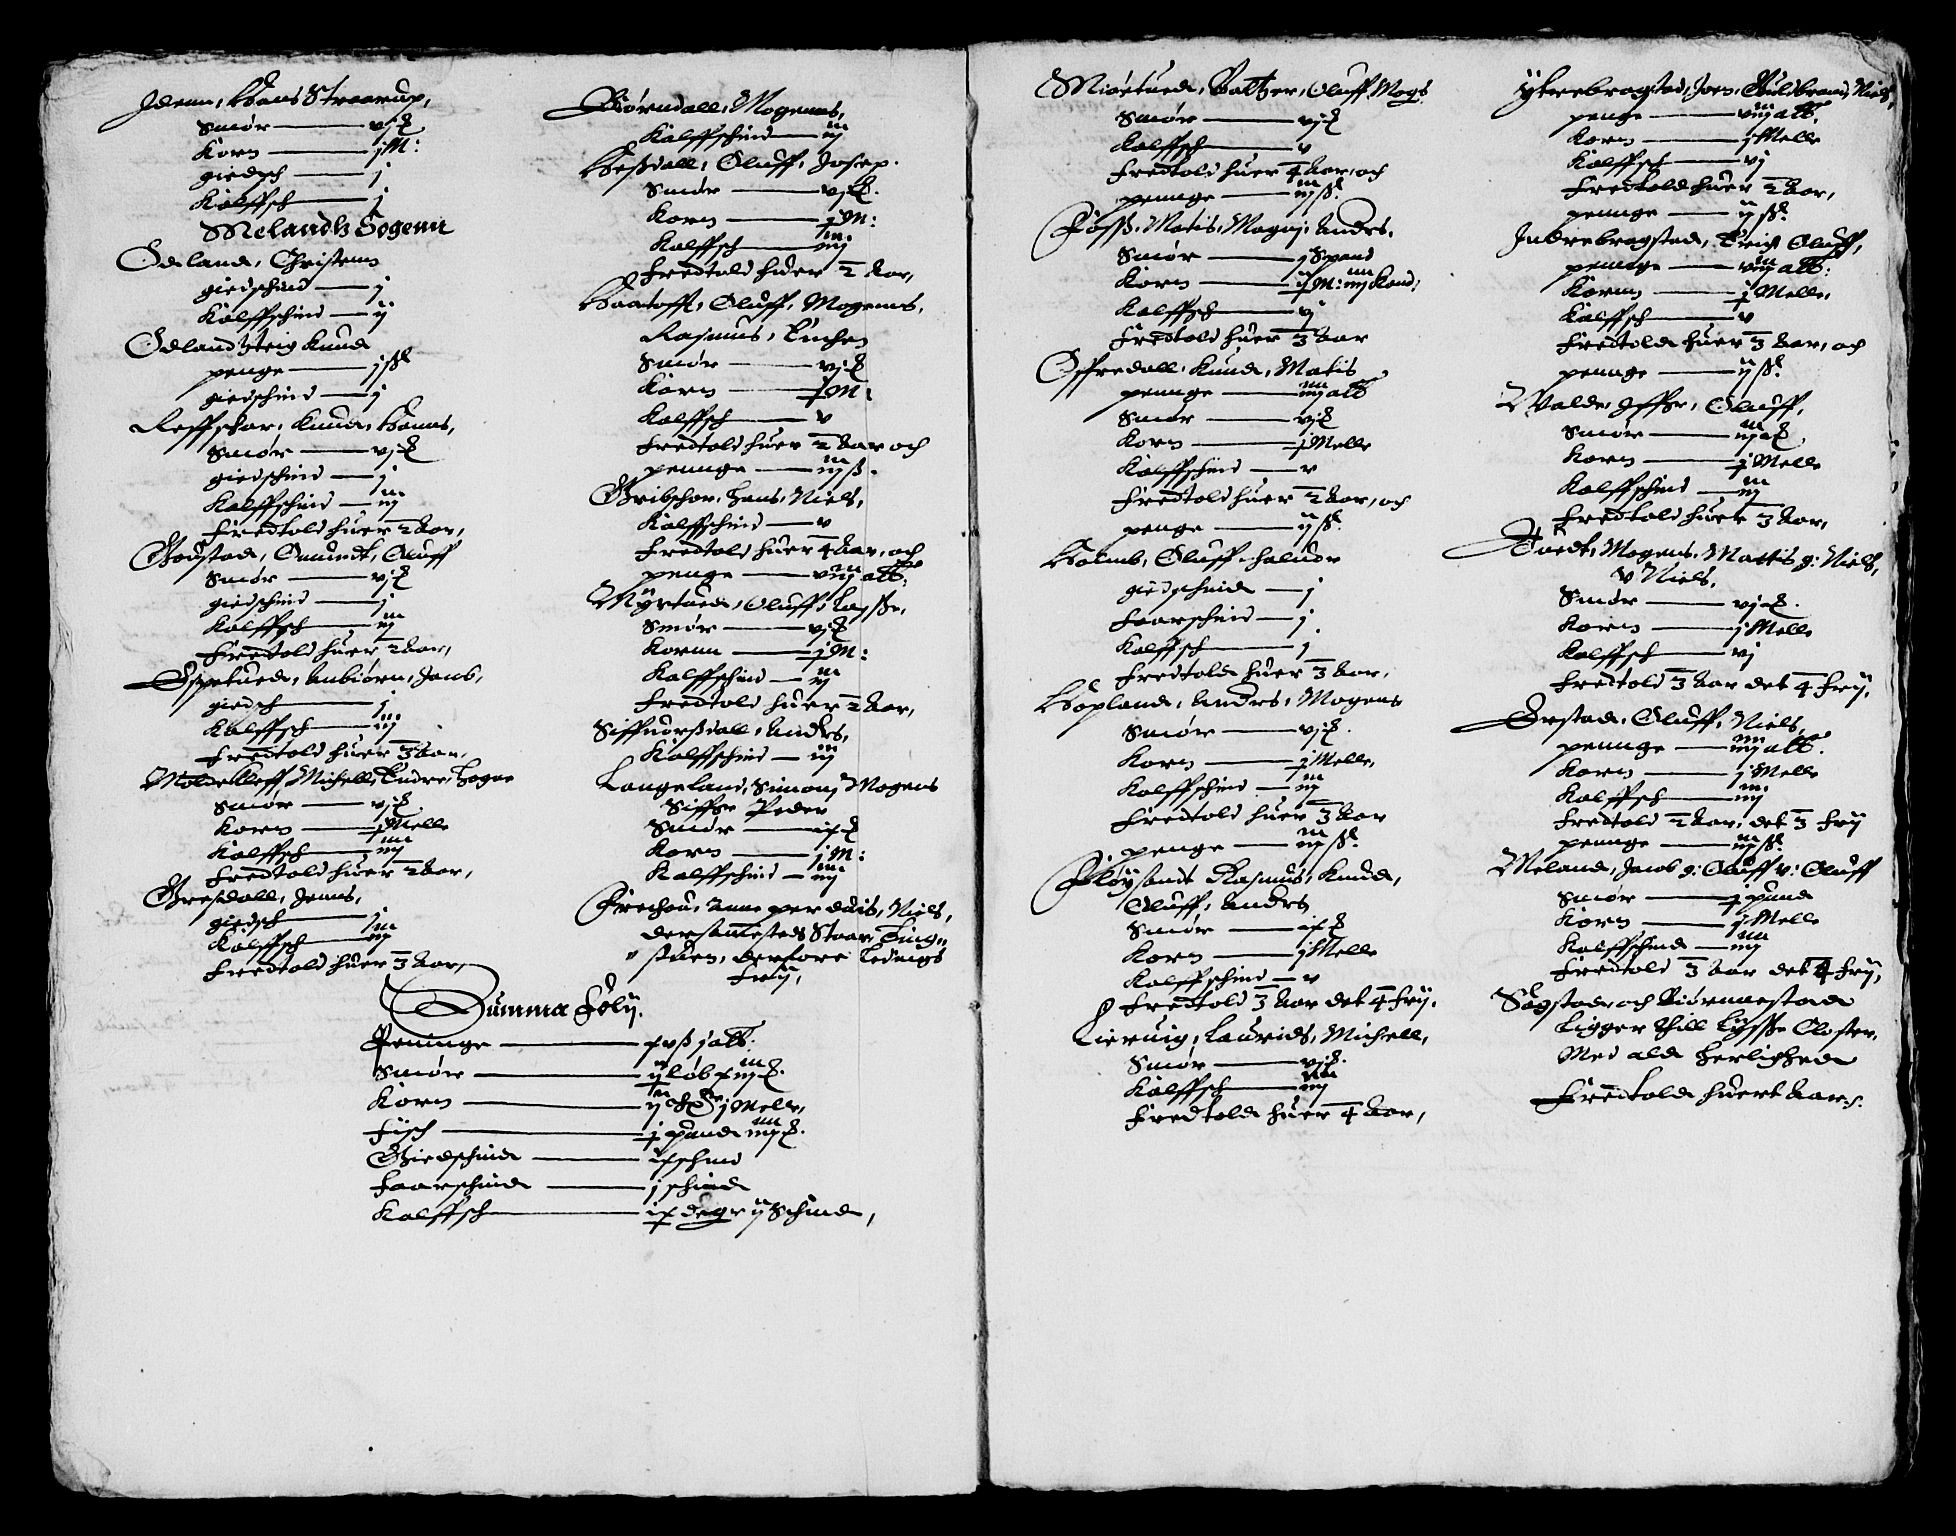 Idenn, Hans Straarup,
Smør — vj ℔
Korn — j M:
giedsch — j
Kalffsch — j
Melandtz Sogenn
Ødeland, Christenn
giedschind — j
Kalffschind — ij
Ødlandtzteig Knud
penge — j ß
giedschind — j
Reffschar, Knud, Hanns,
Smør — vj ℔
giedschind — j
Kalffschind — iij
Fredtold huer 2 Aar,
Godstad, Omundt, Oluff
Smør — vj ℔
giedschind — j
Kalffsch — iij
Fredtold huer 2 Aar,
Espetued, Anbiørn, Jens,
giedsch — j
Kalffsch — iij
Fredtold huer 3 Aar,
Moldekleff, Michell, Endre, Hogne
Smør — vj ℔
Korn — j Melle
Kalffsch — iiij
Fredtold huer 2 Aar,
Gresdall, Jenns,
giedsch — j
Kalffsch — iij
Fredtold huer 3 Aar,
Biørndall, Mogenns,
Kalffschind — iij
Heßdall, Oluff, Josep.
Smør — vj ℔.
Korn — j M:
Kalffsch — iiij
Fredtold huer 2 Aar,
Haatofft, Oluff, Mogenns,
Rasmus,
Smør — vj ℔
Korn — j M:
Kalffsch — v
Fredtold huer 2 Aar och
pennge — iij ß.
Gribschor, Hans, Niels,
Kalffschind — v
Fredtold huer 4 Aar, och
penge — viij alb:
Myrtued, Oluff, Lasse,
Smør — vj ℔
Kornn — j M:
Kalffschind — iij
Fredtold huer 2 Aar,
Siffuorßdall, Anders,
Kalffschind — iij
Langeland, Simon, Mogens
Siffer Peder
Smør — ix ℔
Korn — j M:
Kalffschind — iiij
Frechou, Anne per dais, Niels,
dersammesteds Staar Ting„
„ stuen, derfore Ledings
frij,
Summa Folij.
Peninge — xv ß j alb.
Smør — ij løb x iij ℔.
Korn — j Melle,
Fisch — j pund iiij ℔.
Giedschind — ix schind
Faarschind — j schind
Kalffsch — ix degr ij Schind,
Miøetued, Baltzer, Oluff, Mogs
Smør — vj ℔
Kalffsch — v
Fredtold huer 4 Aar, och
pennge — iij ß.
Foss, Matis, Mogns, Anders,
Smør — j Spand
Korn — ij M: iiij Kand:
Kalffsch — vj
Fredtold huer 3 Aar
Offredall, Knud, Matis
pennge — iiij alb
Smør — vj ℔
Korn — j Melle
Kalffschind — v
Fredtold huer 2 Aar, och
penge — ij ß.
Holmb, Oluff
giedschind — j
Faarschind — j
Kalffsch — j
Fredtold huer 3 Aar,
Hopland, Anders, Mogens
Smør — vj ℔.
Korn — j Melle,
Kalffschind — iij
Fredtold huer 3 Aar
penge — iij ß.
Fløysand Rasmus, Knud,
Oluff, Anders
Smør — ix ℔
Korn — j Melle
Kalffschind — v
Fredtold 3 Aar det 4 frij,
Lieruig, Laurids, Michell,
Smør — vj ℔.
Kalffsch — iiij
Fredtold huer 4 Aar,
Ytrebragstad, Joen, Guldbrand, Niels,
penge — viij alb,
Korn — j Melle
Kalffsch — vj
Fredtold huer 2 Aar,
pennge — ij ß.
Indrebragstad, Erich Oluff,
pennge — viij alb:
Kornn — j Melle,
Kalffsch — v
Fredtold huer 3 Aar, och
pennge — ij ß.
Walde, Iffer, Oluff,
Smør — iij ℔
Korn — j Melle
Kalffschind — iij
Fredtold huer 3 Aar,
Mogens, Mattis g: Niels,
v Niels,
Smør — vj ℔.
Korn — j Melle
Kalffsch — vj
Fredtold 3 Aar det 4 frij,
Ørstad, Oluff, Niels,
pennge — iiij alb.
Korn — j Melle
Kalffsch — iiij
Fredtold 2 Aar, det 3 frij
pennge — iij ß.
Meland, Jacob g: Oluff v: Oluff
Smør — j pund
Korn — j Melle
Kalffschind — iiij
Fredtold 3 Aar det 4 frij,
Sagstad, och Biørnnestad
Ligger till Lysse Closter,
Med ald herlighed
Fredtold huert Aar.